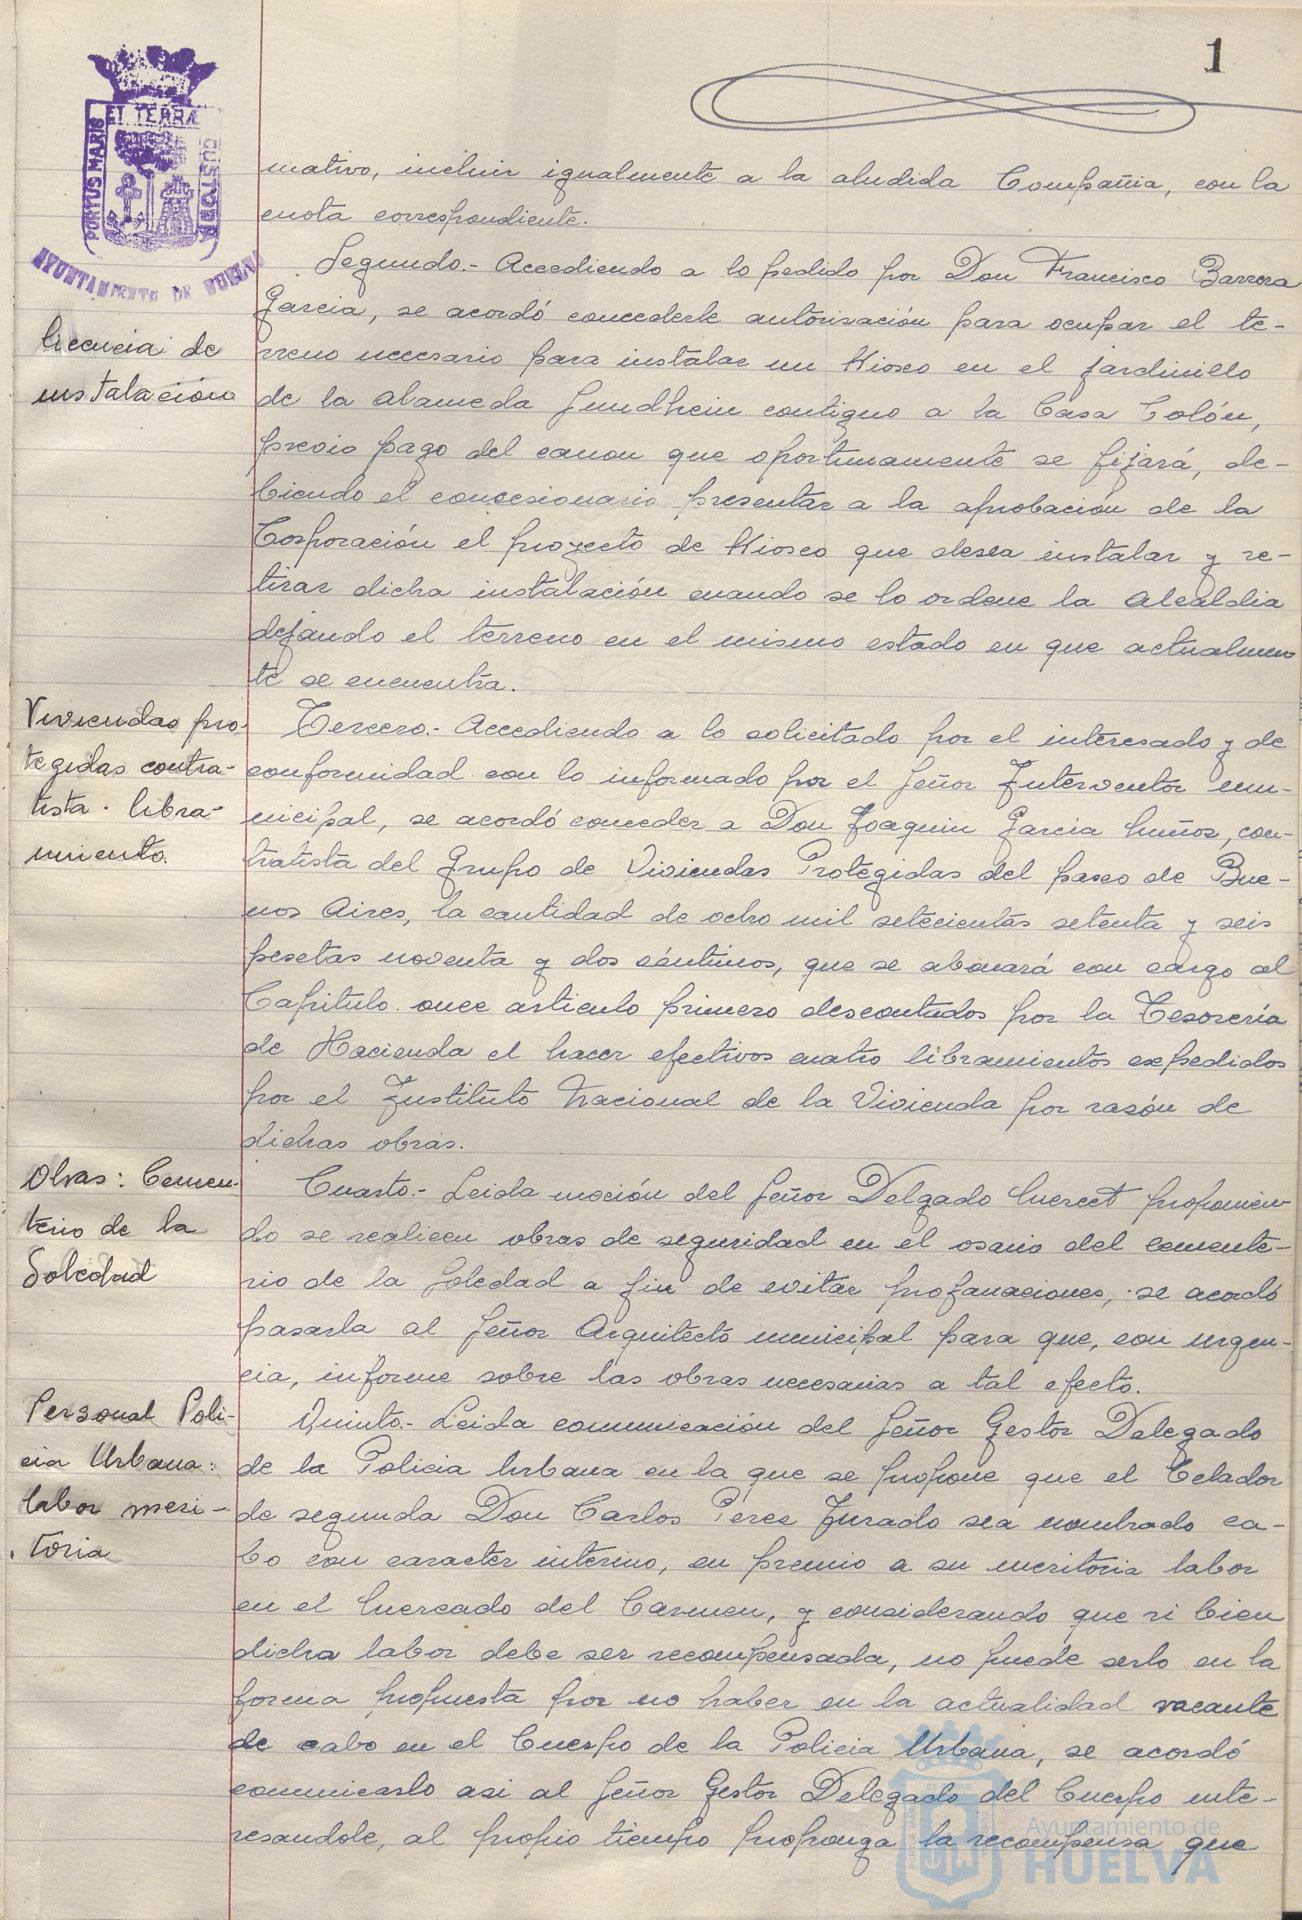 1
ET TERRÆ
PORTUS MARIS
CUSTODIA
AYUNTAMIENTO DE HUELVA
mativo, incluir igualmente a la aludida Compañia, con la
cuota correspondiente.
Licencia de
instalación
Segundo.- Accediendo a lo pedido por Don Francisco Barrera
Garcia, se acordó concederle autorización para ocupar el te-
rreno necesario para instalar un Kiosco en el jardinillo
de la Alameda Sundhein contiguo a la Casa Colón,
previo pago del canon que oportunamente se fijará, de-
biendo el concesionario presentar a la aprobación de la
Corporación el proyecto de Kiosco que desea instalar y re-
tirar dicha instalación cuando se lo ordene la Alcaldia
dejando el terreno en el mismo estado en que actualmen
te se encuentra.
Viviendas pro-
tegidas contra-
tista. libra-
miento.
Tercero.- Accediendo a lo solicitado por el interesado y de
conformidad con lo informado por el Señor Interventor mu-
nicipal, se acordó conceder a Don Joaquin Garcia Muñoz, con-
tratista del Grupo de Viviendas Protegidas del paseo de Bue-
nos Aires, la cantidad de ocho mil setecientas setenta y seis
pesetas noventa y dos céntimos, que se abonará con cargo al
Capitulo once articulo primero descontados por la Tesoreria
de Hacienda el hacer efectivos cuatro libramientos expedidos
por el Instituto Nacional de la Vivienda por razón de
dichas obras.
Obras: Cemen-
terio de la
Soledad
Cuarto.- Leida moción del Señor Delgado Merect proponien
do se realicen obras de seguridad en el osario del cemente-
rio de la Soledad a fin de evitar profanaciones, se acordó
pasarla al Señor Arquitecto municipal para que, con urgen-
cia, informe sobre las obras necesarias a tal efecto.
Personal Poli-
cia Urbana:
labor meri-
toria
Quinto.- Leida comunicación del Señor Gestor Delegado
de la Policia Urbana en la que se propone que el Celador
de segunda Don Carlos Perez Jurado sea nombrado ca-
bo con caracter interino, en premio a su meritoria labor
en el Mercado del Carmen, y considerando que si bien
dicha labor debe ser recompensada, no puede serlo en la
forma propuesta por no haber en la actualidad vacante
de cabo en el Cuerpo de la Policia Urbana, se acordó
comunicarlo asi al Señor Gestor Delegado del Cuerpo inte-
resandole, al propio tiempo proponga la recompensa que
Ayuntamiento de
HUELVA